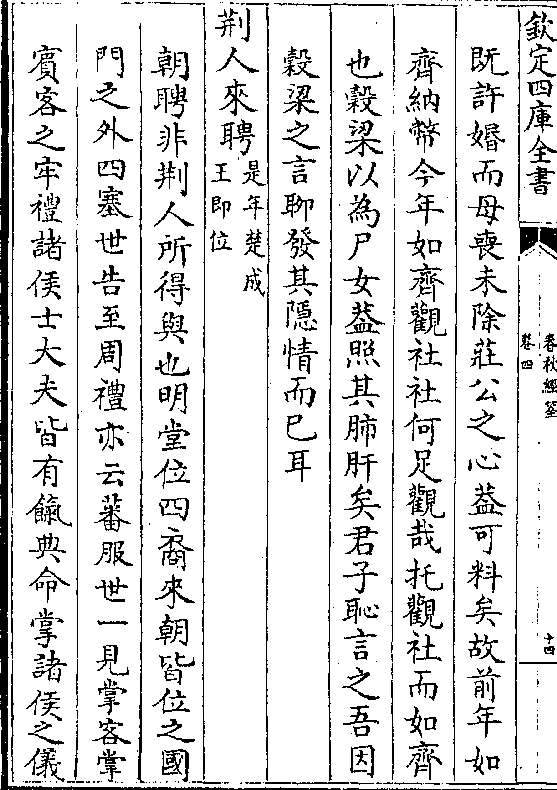 欽定四庫全書
春秋經筌
卷四
十四
既許婚而母喪未除莊公之心葢可料矣故前年如
齊納幣今年如齊觀社社何足觀哉托觀社而如齊
也穀梁以為尸女葢照其肺肝矣君子恥言之吾因
穀梁之言聊發其隱情而已耳
荆人來聘是年楚成
王即位
朝聘非荆人所得與也明堂位四裔來朝皆位之國
門之外四塞世告至周禮亦云蕃服世一見掌客掌
賓客之牢禮諸侯士大夫皆有餼典命掌諸侯之儀